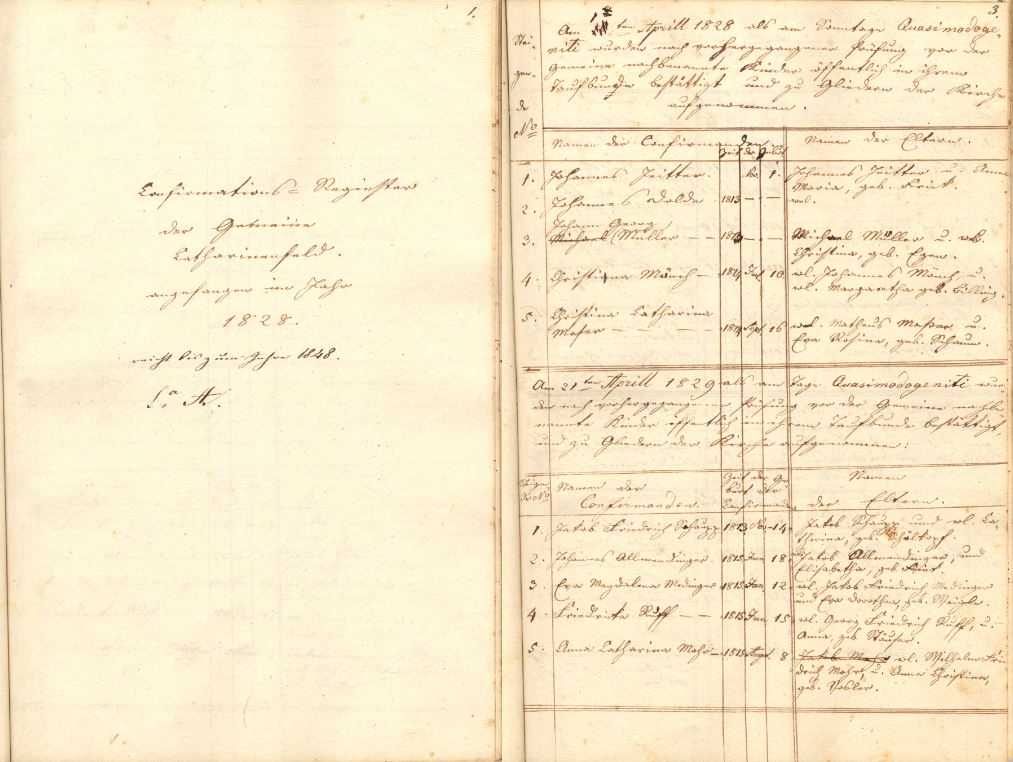 1.
Confirmations= Regiester
der Gemeine
Catharinenfeld.
angefangen im Jahr
1828.
reicht bis zum Jahre 1848.
3.
Am ten Aprill 1828 als am Sonntage Quasimodoge-
niti wurden nach vorhergegangener Prüfung vor der
Gemeine nachbenannte Kinder öffentlich in ihrem
Taufbunde bestättigt und zu Gliedern der Kirche
aufgenommen.
Stei-
gen-
de
No
Namen der Confirmanden
Zeit der Geburt
Namen der Eltern.
1. Johannes 1. Johannes u. Anna
Maria, geb.
2. Johannes Dolde 1813 — — wl.
Johann Georg
3. Michael Müller — — — — Michael Müller u. wl.
Christina, geb.
4. Christiana Münch — 1814 10 wl. Johannes Münch, u.
wl. Margaretha geb. Billing.
5. Christina Catharina
Moser — — 1814 Sept. 16 wl. Matheus Moser, u.
Eva Rosina, geb. Schaum.
Am 21ten Aprill 1829 als am Tage Quasimodogeniti wur-
den nach vorhergegangener Prüfung vor der Gemeine nachbe-
nannte Kinder öffentlich in ihrem Taufbunde bestättigt,
und zu Gliedern der Kirche aufgenommen:
No
Namen der
Confirmanden.
Zeit der Ge-
burt der
Confirmanden
Namen
der Eltern.
1. Jakob Friedrich Schaupp 1813 Nov. 14 Jakob Schaupp und wl. Ca-
tharina, geb.
2. Johannes Allmendinger 1815 Jan. 18 Jakob Allmendinger, und
Elisabetha, geb.
3. Eva Magdalena Medinger 1815 Jan. 12 wl. Jakob Friedrich Medinger
und Eva Dorothea, geb. Weigle.
4. Friedrika Ruff — — 1815 Jan. 15 wl. Georg Friedrich Ruff, u.
Anna, geb.
5. Anna Catharina Mohr — 1815 Augst. 8 Jakob Mohr wl. Wilhelm Frie-
drich Mohr, u. Anna Christina,
geb.